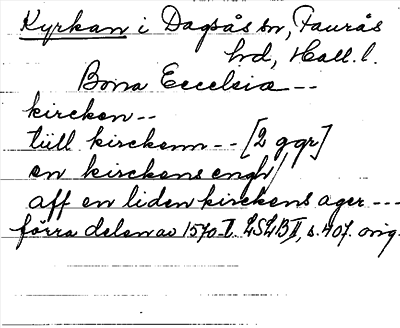 Kyrkan i Dagsås sn, Faurås
hd, Hall. l.
Bona Eccelsia --
kircken --
tiill kirckenn -- [2 ggr]
en kirckens engh/
aff en liden kirckens ager ---
förra delen av 1570-t. LSLB II, s. 407. orig.